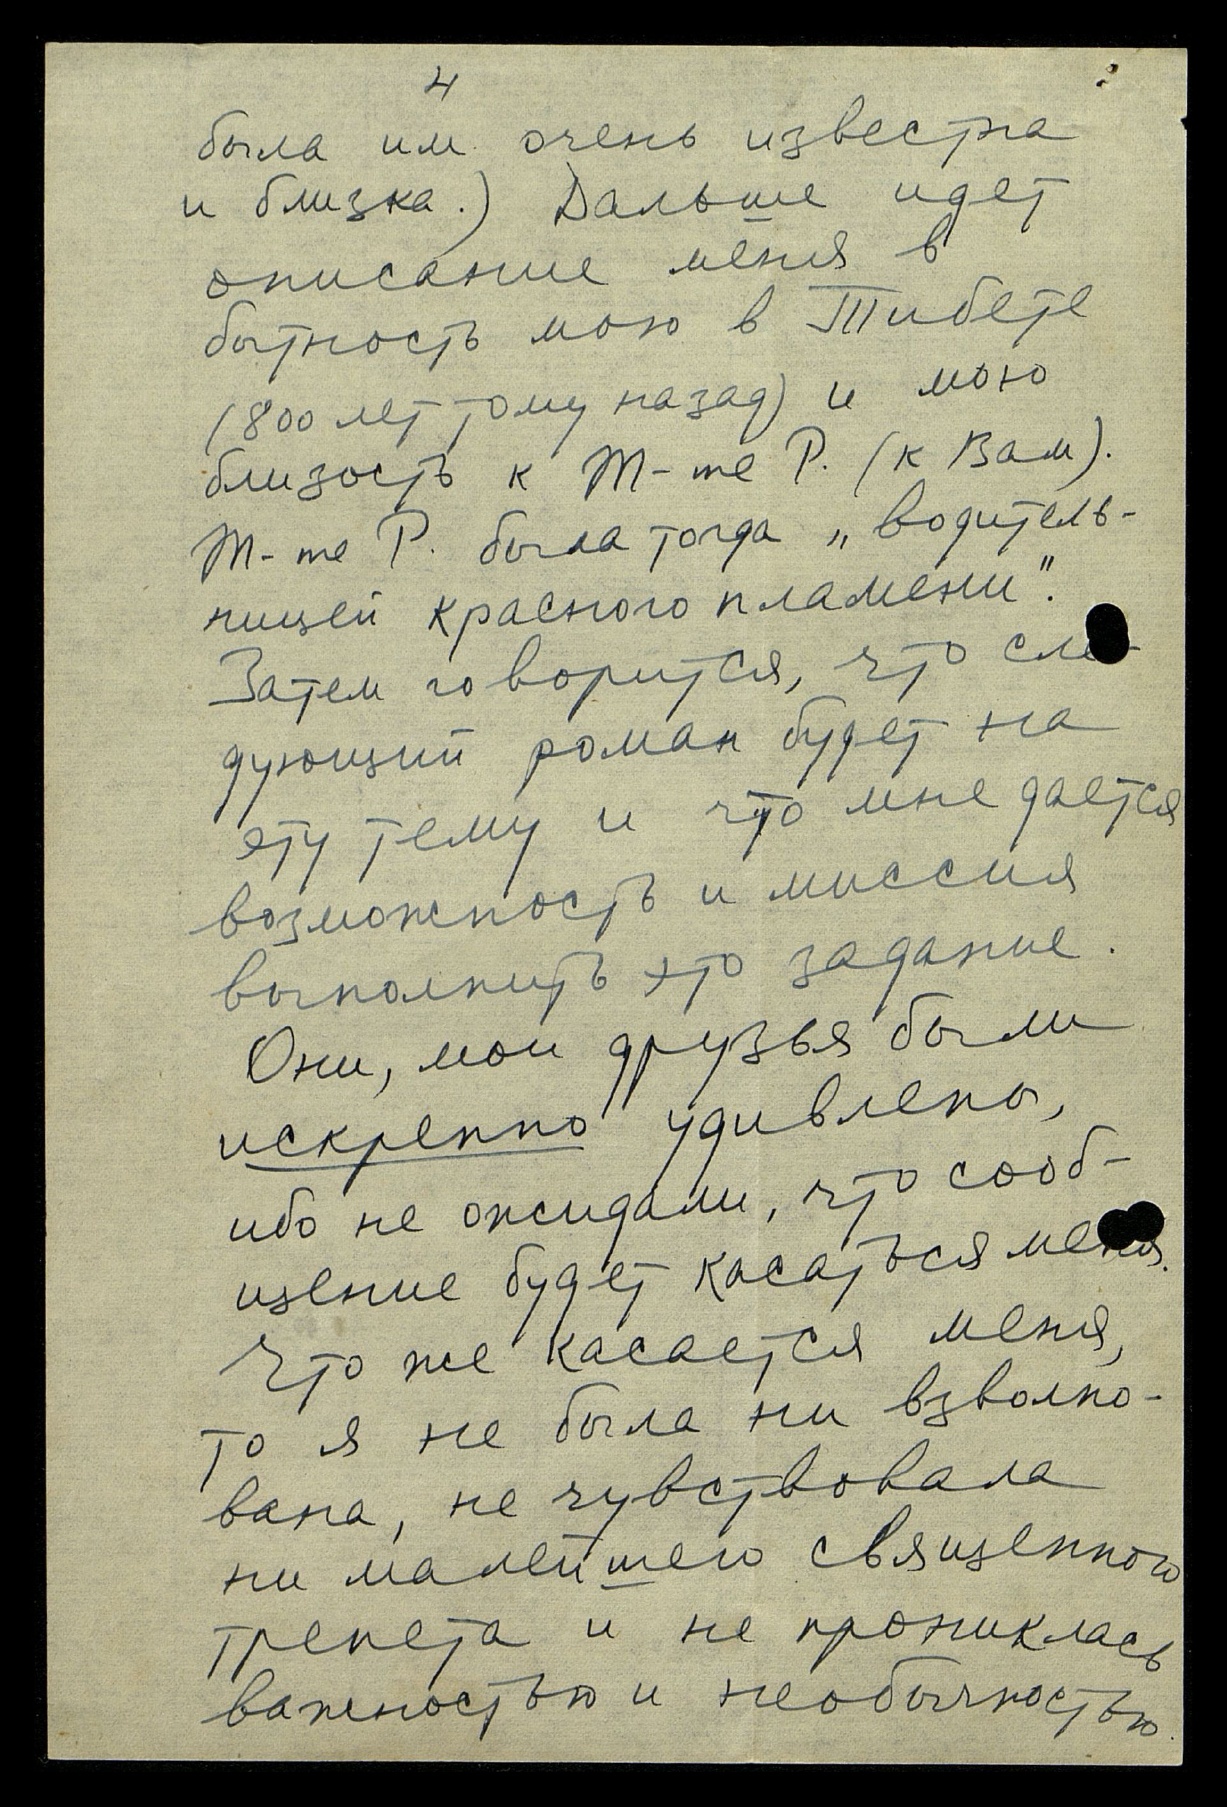 4
была им очень известна
и близка.) Дальше идет
описание меня в
бытность мою в Тибете
(800 лет тому назад) и мою
близость к M-me Р. (к Вам).
M-me Р. была тогда „водитель-
ницей красного пламени".
Затем говорится, что сле-
дующий роман будет на
эту тему и что мне дается
возможность и миссия
выполнить это задание.
Они, мои друзья были
искренно удивлены,
ибо не ожидали, что сооб-
щение будет касаться меня.
Что же касается меня,
то я не была ни взволно-
вана, не чувствовала
ни малейшего священного
трепета и не прониклась
важностью и необычностью